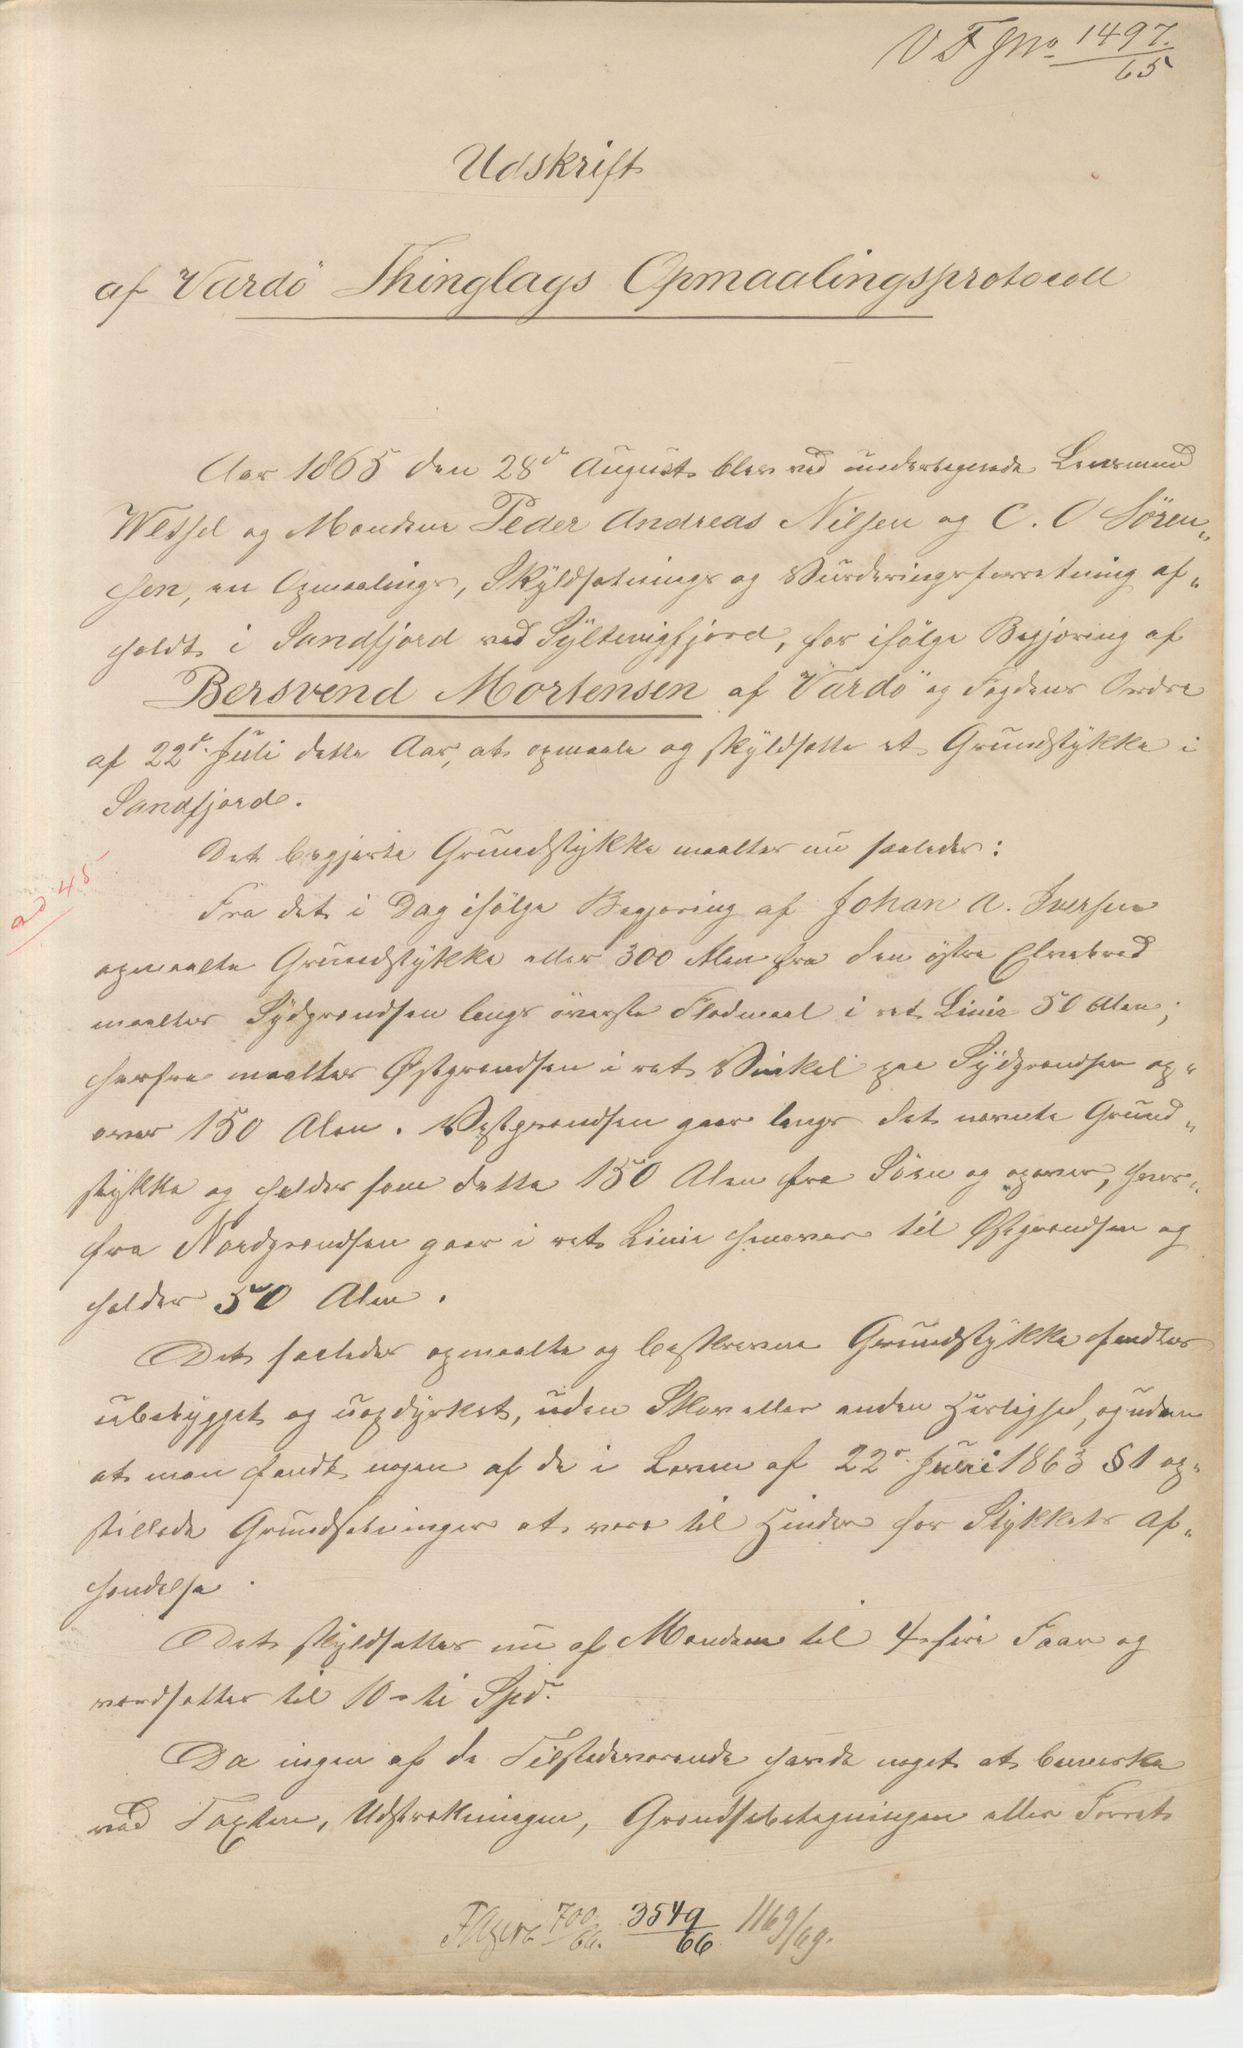 V F JNo 1497/65
Udskrift
af Vardö Thinglags Opmaalingsprotocoll
Aar 1865 den 28de August blev ved undertegnede Lensmand
Wessel og Mændene Peder Andreas Nilsen og C. O Sören„
sen, en Opmaalings, Skyldsætnings og Vurderingsforretning af„
holdt i Sandfjord ved Syltevigfjord, for ifölge Begjæring af
Bersvend Mortensen af Vardö og Fogdens Ordre
af 22de Juli dette Aar, at opmaale og skyldsætte et Grundstykke i
Sandfjord.
Det begjærte Grundstykke maaltes nu saaledes:
ad 45
Fra det i Dag ifölge Begjæring af Johan A. Iversen
opmaalte Grundstykke eller 300 Alen fra den östre Elvebred
maaltes Sydgrændsen langs överste Flodmaal i ret Linie 50 Alen;
herfra maaltes Østgrændsen i ret Vinkel paa Sydgrændsen op„
over 150 Alen. Vestgrændsen gaar langs det nævnte Grund„
stykke og holder som dette 150 Alen fra Söen og opover, hvor„
fra Nordgrændsen gaar i ret Linie henover til Østgrændsen og
holder 50 Alen.
Det saaledes opmaalte og beskrevne Grundstykke fandtes
ubebygget og uopdyrket, uden Skov eller anden Herlighed, og uden
at man fandt nogen af de i Loven af 22de Juni 1863 § 1 op„
stillede Grundsætninger at være til Hinder for Stykkets Af„
hændelse.
Det skyldsattes nu af Mændene til 4 fire Faar og
værdsattes til 10 - ti Spd.
Da ingen af de Tilstedeværende havde noget at bemærke
ved Taxten, Udstrækningen, Grændsebetegningen eller Forret
700/66. 3549/66 1169/69.